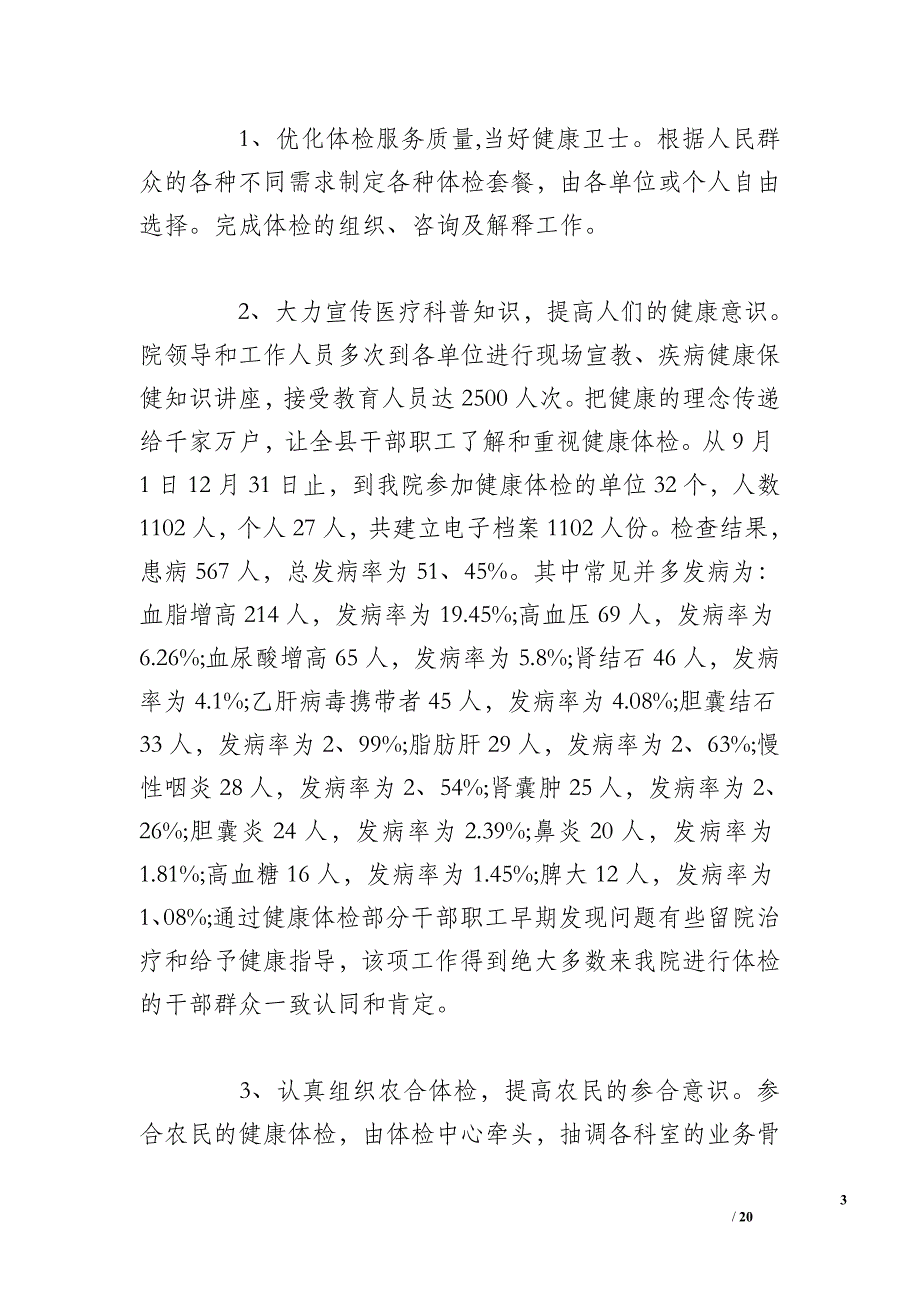 1、优化体检服务质量,当好健康卫士。根据人民群
众的各种不同需求制定各种体检套餐，由各单位或个人自由
选择。完成体检的组织、咨询及解释工作。
2、大力宣传医疗科普知识，提高人们的健康意识。
院领导和工作人员多次到各单位进行现场宣教、疾病健康保
健知识讲座，接受教育人员达 2500 人次。把健康的理念传递
给千家万户，让全县干部职工了解和重视健康体检。从 9 月
1 日 12 月 31 日止，到我院参加健康体检的单位 32 个，人数
1102 人，个人 27 人，共建立电子档案 1102 人份。检查结果，
患病 567 人，总发病率为 51、45%。其中常见并多发病为：
血脂增高 214 人，发病率为 19.45%;高血压 69 人，发病率为
6.26%;血尿酸增高 65 人，发病率为 5.8%;肾结石 46 人，发病
率为 4.1%;乙肝病毒携带者 45 人，发病率为 4.08%;胆囊结石
33 人，发病率为 2、99%;脂肪肝 29 人，发病率为 2、63%;慢
性咽炎 28 人，发病率为 2、54%;肾囊肿 25 人，发病率为 2、
26%;胆囊炎 24 人，发病率为 2.39%;鼻炎 20 人，发病率为
1.81%;高血糖 16 人，发病率为 1.45%;脾大 12 人，发病率为
1、08%;通过健康体检部分干部职工早期发现问题有些留院治
疗和给予健康指导，该项工作得到绝大多数来我院进行体检
的干部群众一致认同和肯定。
3、认真组织农合体检，提高农民的参合意识。参
合农民的健康体检，由体检中心牵头，抽调各科室的业务骨
3
/ 20